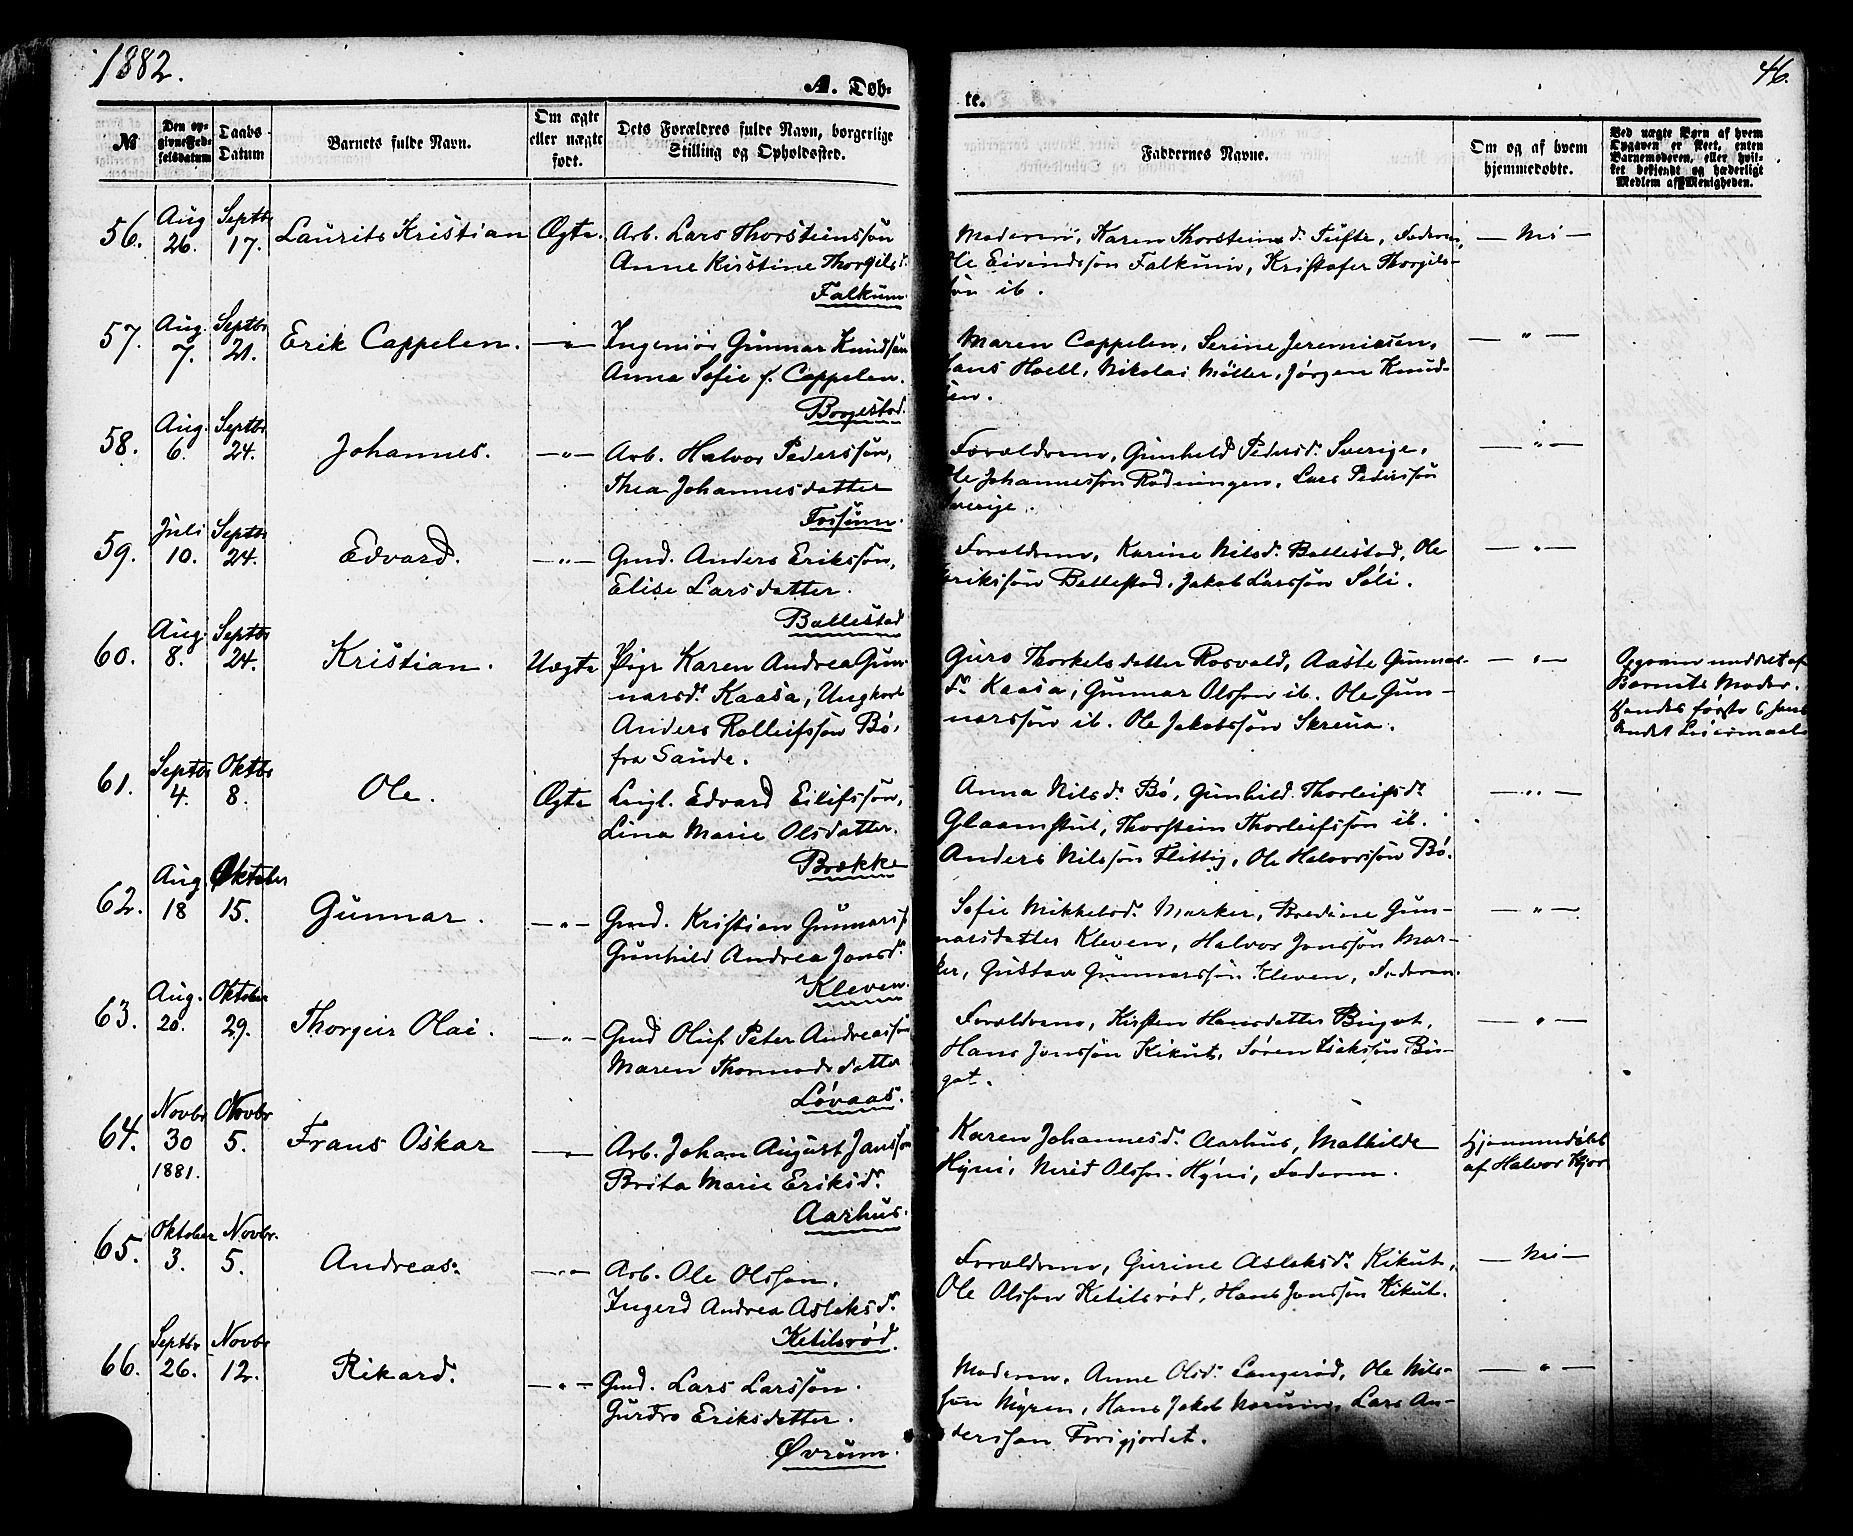 1882.
A. Døb-
te.
46.
№
Den op-
givne Fød-
selsdatum
Daabs-
Datum
Barnets fulde Navn.
Om ægte
eller uægte
født.
Dets Forældres fulde Navn, borgerlige
Stilling og Opholdssted.
Faddernes Navne.
Om og af hvem
hjemmedøbte.
Ved uægte Børn af hvem
Opgaven er skeet, enten
Barnemoderen, eller hvil-
ket bekjendt og hæderligt
Medlem af Menigheden.
56. Aug 26. Septbr 17. Laurits Kristian Ægte. Arb. Lars Thorstenssøn
Anne Kirstine Thorgilsd.
Falkum.
Moderen, Karen Thorsteinsd. Tufte, Faderen,
Ole Eivindssøn Falkum, Kristofer Thorgils-
søn ib.
— Nei —
57. Aug. 7. Septbr 21. Erik Cappelen. —"— Ingeniør Gunnar Knudsen
Anna Sofie f. Cappelen.
Borgestad.
Maren Cappelen, Serine Jeremiasen,
Hans Hoell, Nikolai Møller, Jørgen Knud-
sen.
— " —
58. Aug. 6. Septbr 24. Johannes. —"— Arb. Halvor Pederssøn,
Thea Johannesdatter
Fossum.
Forældrene, Gunhild Pedersd. Sverige,
Ole Johannessøn Rødningen, Lars Pederssøn
Sverige.
— " —
59. Juli 10. Septbr 24. Edvard. —"— Gmd. Anders Erikssøn,
Elise Larsdatter.
Ballestad
Forældrene, Karine Nilsd. Ballestad, Ole
Erikssøn Ballestad, Jakob Larssøn Søli.
— " —
60. Aug. 8. Septbr 24. Kristian. Uægte Pige Karen Andrea Gun-
narsd. Kaasa, Ungkarl
Anders Rolleifssøn Bø,
fra Sande.
Guro Thorkelsdatter Rosvald, Aaste Gunnars-
d. Kaasa, Gunnar Olssøn ib. Ole Gun-
narssøn ib. Ole Jakobssøn Skrena.
— " —
Opgaven meddelt af
Barnets Moder.
Hendes første
Andet Leiermaal
61. Septbr 4. Oktbr 8. Ole. Ægte Leigl. Edvard Eilifssøn,
Lina Marie Olsdatter.
Brække
Anna Nilsd. Bø, Gunhild Thorleifsd.
Glaamstul, Thorstein Thorleifssøn ib.
Anders Nilssøn Flittig, Ole Halvorssøn Bø.
— " —
62. Aug 18 Oktober 15. Gunnar. —"— Gmd. Kristian Gunnarss.
Gunhild Andrea Jonsd.
Kleven.
Sofie Mikkelsd. Marker, Bredine Gun-
narsdatter Kleven, Halvor Jonssøn Mar-
ker, Gustav Gunnarssøn Kleven, Faderen.
— " —
63. Aug. 20. Oktober 29. Thorgeir Olai. —"— Gmd Oluf Peter Andreassøn
Maren Thormodsdatter
Løvaas.
Forældrene, Kirsten Hansdatter Bugot,
Hans Jonssøn Kikut, Søren Isakssøn Bu-
got.
— " —
64. Novbr 30 1881. Novbr 5. Frans Oskar —"— Arb. Johan August Janssøn
Brita Marie Eriksd.
Aarhus.
Karen Johannesd. Aarhus, Mathilde
Hyni, Olssøn Hyni, Faderen.
Hjemmedøbt
af Halvor
65. Oktober 3. Novbr. 5. Andreas. —"— Arb. Ole Olssøn,
Ingerd Andrea Aslaksd.
Ketilsrød.
Forældrene, Gurine Aslaksd. Kikut,
Ole Olssøn Ketilsrød, Hans Jonssøn Kikut.
— Nei —
66. Septbr 26. Novbr 12. Rikard. —"— Gmd. Lars Larssøn.
Gurdro Eriksdatter.
Øvrum.
Moderen, Anne Olsd. Langerød, Ole Nils-
søn Myren, Hans Jakob Lars An-
derssøn Forigjordet.
— " —